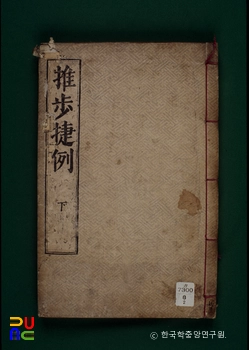 推步捷例
下
7300
PUBC
ⓒ 한국학중앙연구원.